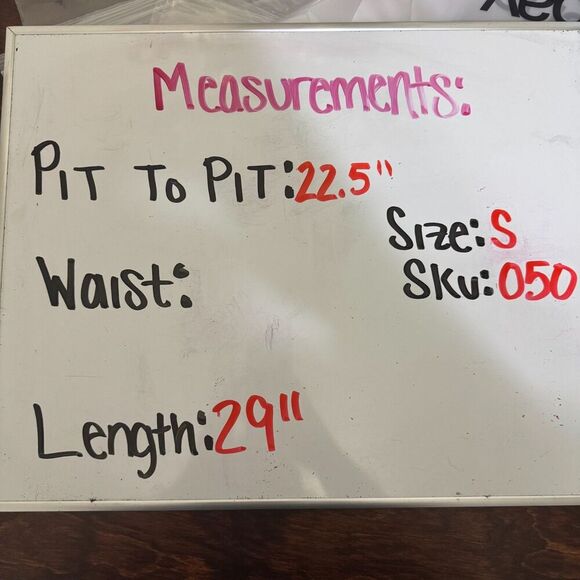 Measurements:
Pit To Pit: 22.5"
Size: S
Waist:
Sku: 050
Length: 29"